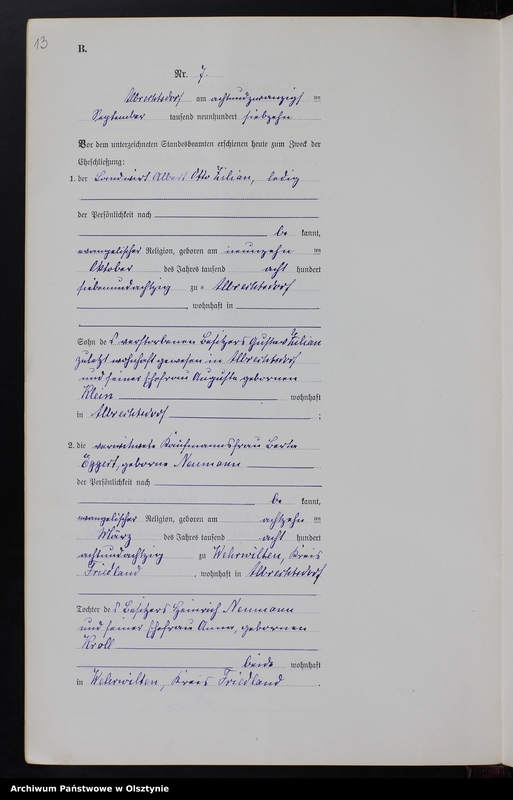 13
B.
Nr. 7.
Albrechtsdorf am achtundzwanzigsten
September tausend neunhundert siebzehn
Vor dem unterzeichneten Standesbeamten erschienen heute zum Zweck der
Eheschließung:
1. der Landwirt Albert Otto Zilian, ledig
der Persönlichkeit nach
be kannt,
evangelischer Religion, geboren am neunzehn ten
Oktober des Jahres tausend acht hundert
siebenundachtzig zu Albrechtsdorf
, wohnhaft in
Sohn des verstorbenen Besitzers Gustav Zilian
zuletzt wohnhaft gewesen in Albrechtsdorf
und seiner Ehefrau Auguste gebornen
Klein wohnhaft
in Albrechtsdorf ;
2. die verwitwete Kaufmannsfrau Berta
Eggert, geborne Neumann
der Persönlichkeit nach
be kannt,
evangelischer Religion, geboren am achtzehn ten
März des Jahres tausend acht hundert
achtundachtzig zu Wehrwilten, Kreis
Friedland, wohnhaft in Albrechtsdorf
Tochter des Besitzers Heinrich Neumann
und seiner Ehefrau Anna, gebornen
Kroll
beide wohnhaft
in Wehrwilten, Kreis Friedland.
Archiwum Państwowe w Olsztynie